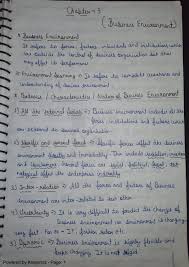 Chapter - 3
(Business Environment)
* Business Environment
It refers to forces, factors, individuals and institutions which
are outside the control of business organisation but that
may effect its performance.
* Environment Scanning → It refers the immediate awareness and
understanding of business environment.
* Features / Characteristics / Nature of Business Environment
1) All the external forces → Business environment include all the
forces, institutions and factors which
are external to business organisation.
2) Specific and general forces → Specific forces affect the business
environment directly and immediately. This include
General forces such as political, legal,
affect the business environment indirectly.
3) Inter-relation → All the forces and factors of Business
environment are inter-related to each other.
4) Uncertainty → It is very difficult to predict the changes of
Business environment as environment is changing
very fast. for ex - IT, fashion sector etc.
5) Dynamic → Business environment is highly flexible and
keeps changing. It is not static
Powered by KeepNotes - Page 1